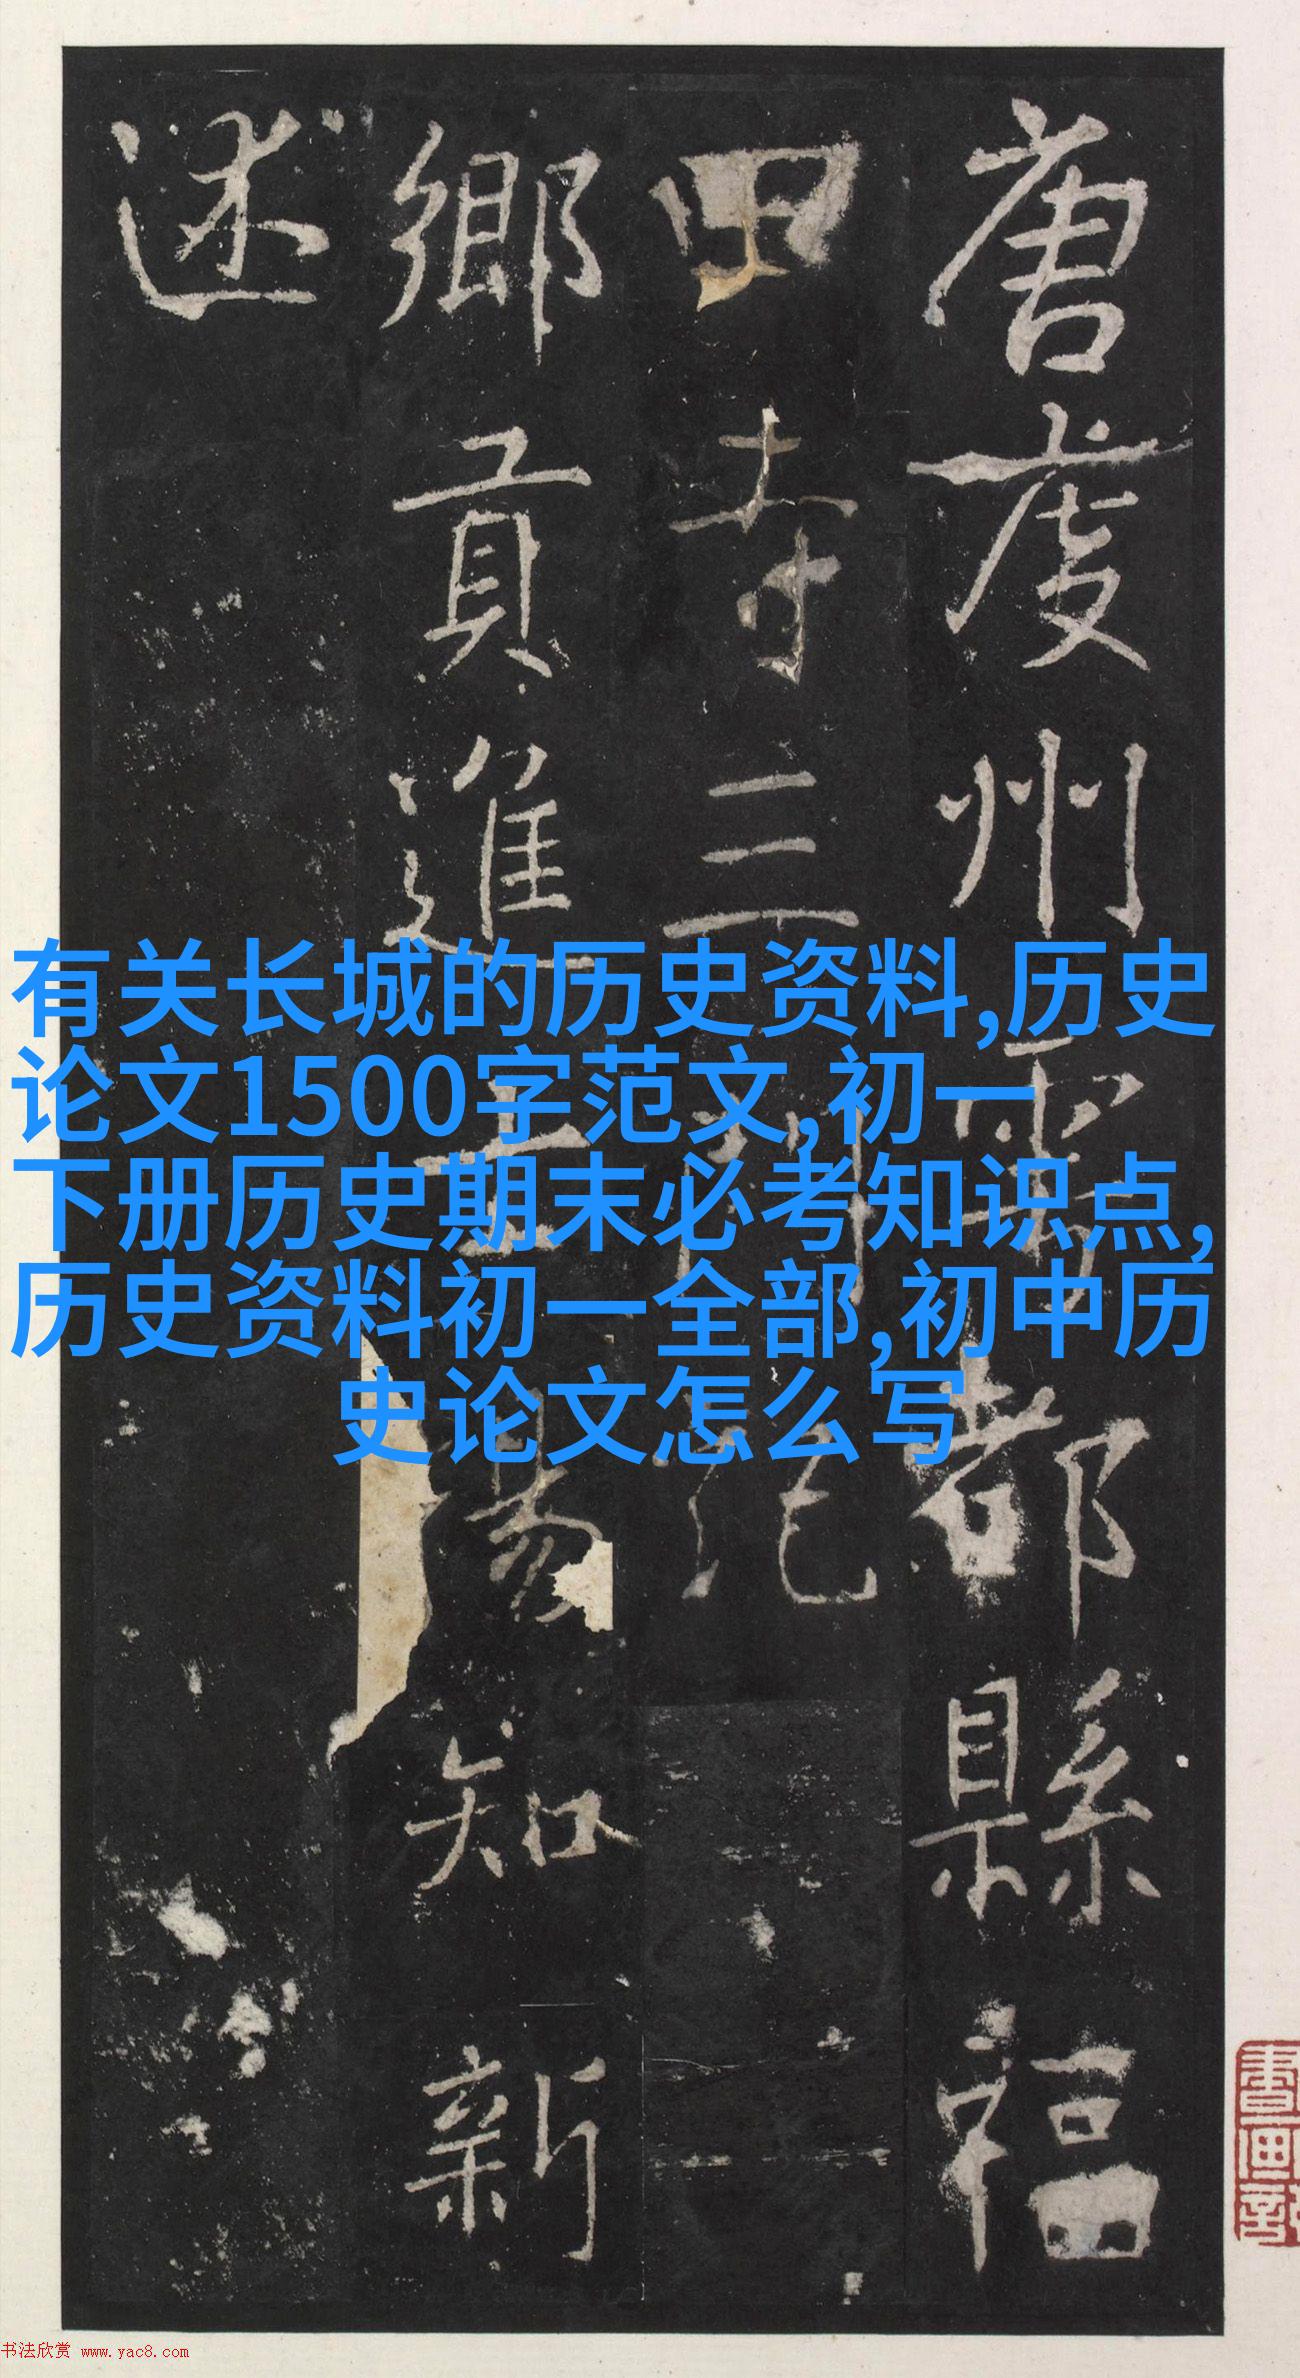 唐虔州雩都縣福
田寺三門記
鄉貢進士楊知新
述
有关长城的历史资料,历史
论文1500字范文,初一
下册历史期末必考知识点,
历史资料初一全部,初中历
史论文怎么写
書画
书法欣赏 www.yac8.com